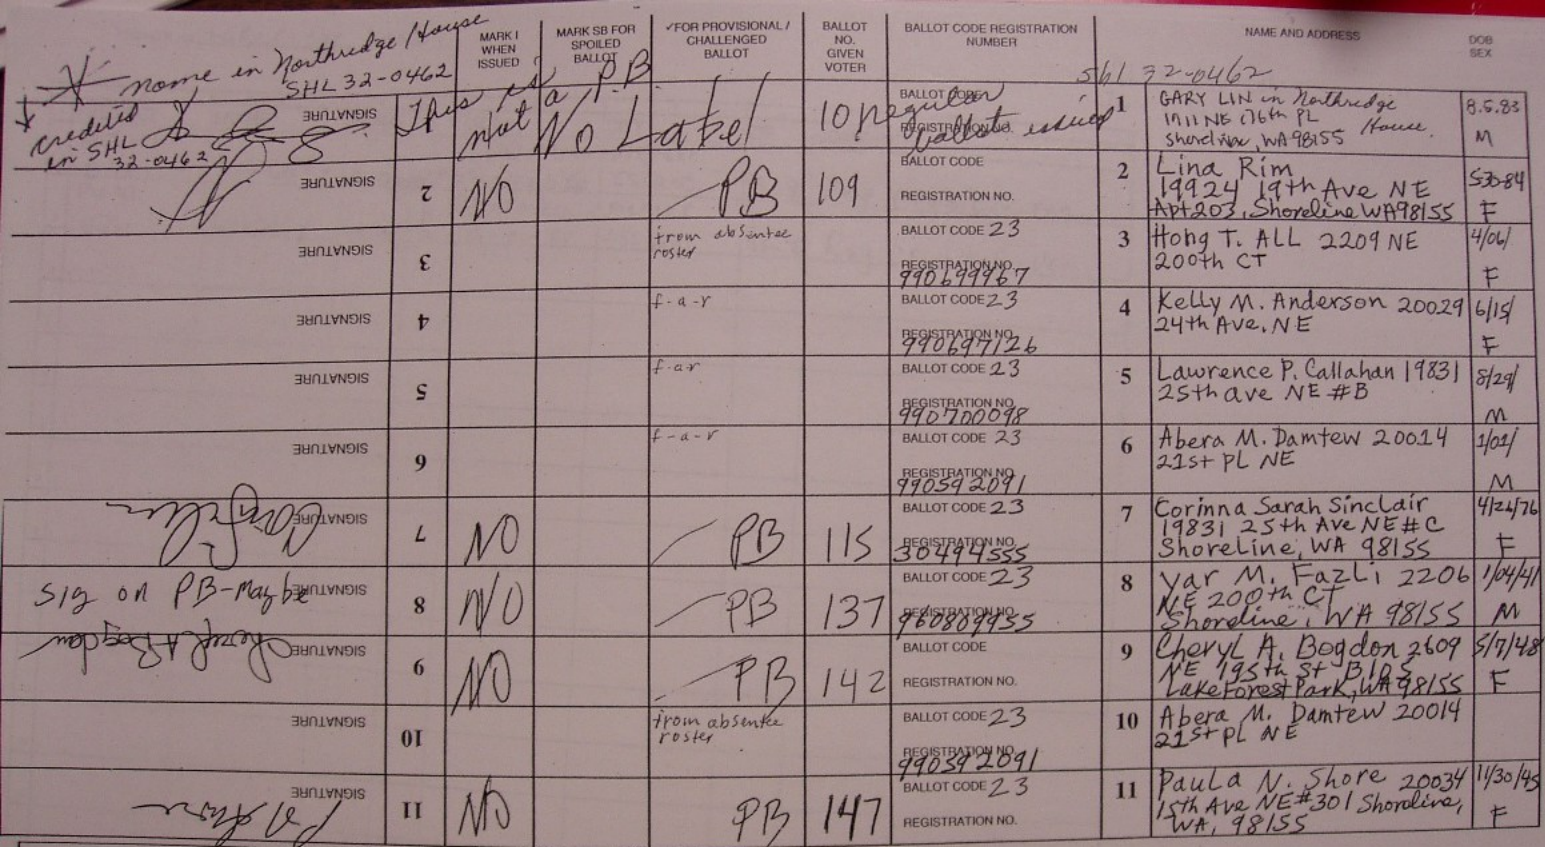 MARK I
WHEN
ISSUED
MARK SB FOR
SPOILED
BALLOT
✓FOR PROVISIONAL /
CHALLENGED
BALLOT
BALLOT
NO.
GIVEN
VOTER
BALLOT CODE REGISTRATION
NUMBER
NAME AND ADDRESS
DOB
SEX
* name in Northredge House
SHL 32-0462
credited
in SHL
32-0462
SIGNATURE
This is
not a PB
No Label
10 regular
ballot issued
BALLOT CODE
REGISTRATION NO.
shl 32-0462
1
GARY LIN in Northredge
1711 NE 176th PL House.
shoreline, WA 98155
8.5.83
M
SIGNATURE
2
NO
PB
109
BALLOT CODE
REGISTRATION NO.
2
Lina Rim
19924 19th Ave NE
Apt 203, Shoreline WA 98155
5-30-84
F
SIGNATURE
3
from absentee
roster
BALLOT CODE 23
REGISTRATION NO.
990699967
3
Hong T. ALL 2209 NE
200th CT
4/06/
F
SIGNATURE
4
f-a-r
BALLOT CODE 23
REGISTRATION NO.
990697126
4
Kelly M. Anderson 20029
24th Ave. NE
6/15/
F
SIGNATURE
5
f-a-r
BALLOT CODE 23
REGISTRATION NO.
990700098
5
Lawrence P. Callahan 19831
25th ave NE #B
8/29/
M
SIGNATURE
6
f-a-r
BALLOT CODE 23
REGISTRATION NO.
990592091
6
Abera M. Damtew 20014
21st PL NE
1/01/
M
SIGNATURE
7
NO
PB
115
BALLOT CODE 23
REGISTRATION NO.
30494555
7
Corinna Sarah Sinclair
19831 25th Ave NE #C
Shoreline, WA 98155
4/26/76
F
sig on PB-maybe
SIGNATURE
8
NO
PB
137
BALLOT CODE 23
REGISTRATION NO.
960809955
8
Yar M. Fazli 2206
NE 200th CT
Shoreline, WA 98155
1/04/41
M
Cheryl A Bogdon
SIGNATURE
9
NO
PB
142
BALLOT CODE
REGISTRATION NO.
9
Cheryl A. Bogdon 2609
NE 195th St B105
Lake Forest Park, WA 98155
5/7/48
F
SIGNATURE
10
from absentee
roster
BALLOT CODE 23
REGISTRATION NO.
990592091
10
Abera M. Damtew 20014
21st PL NE
P N Shore
SIGNATURE
11
NO
PB
147
BALLOT CODE 23
REGISTRATION NO.
11
Paula N. Shore 20034
15th Ave NE #301 Shoreline,
WA, 98155
11/30/45
F